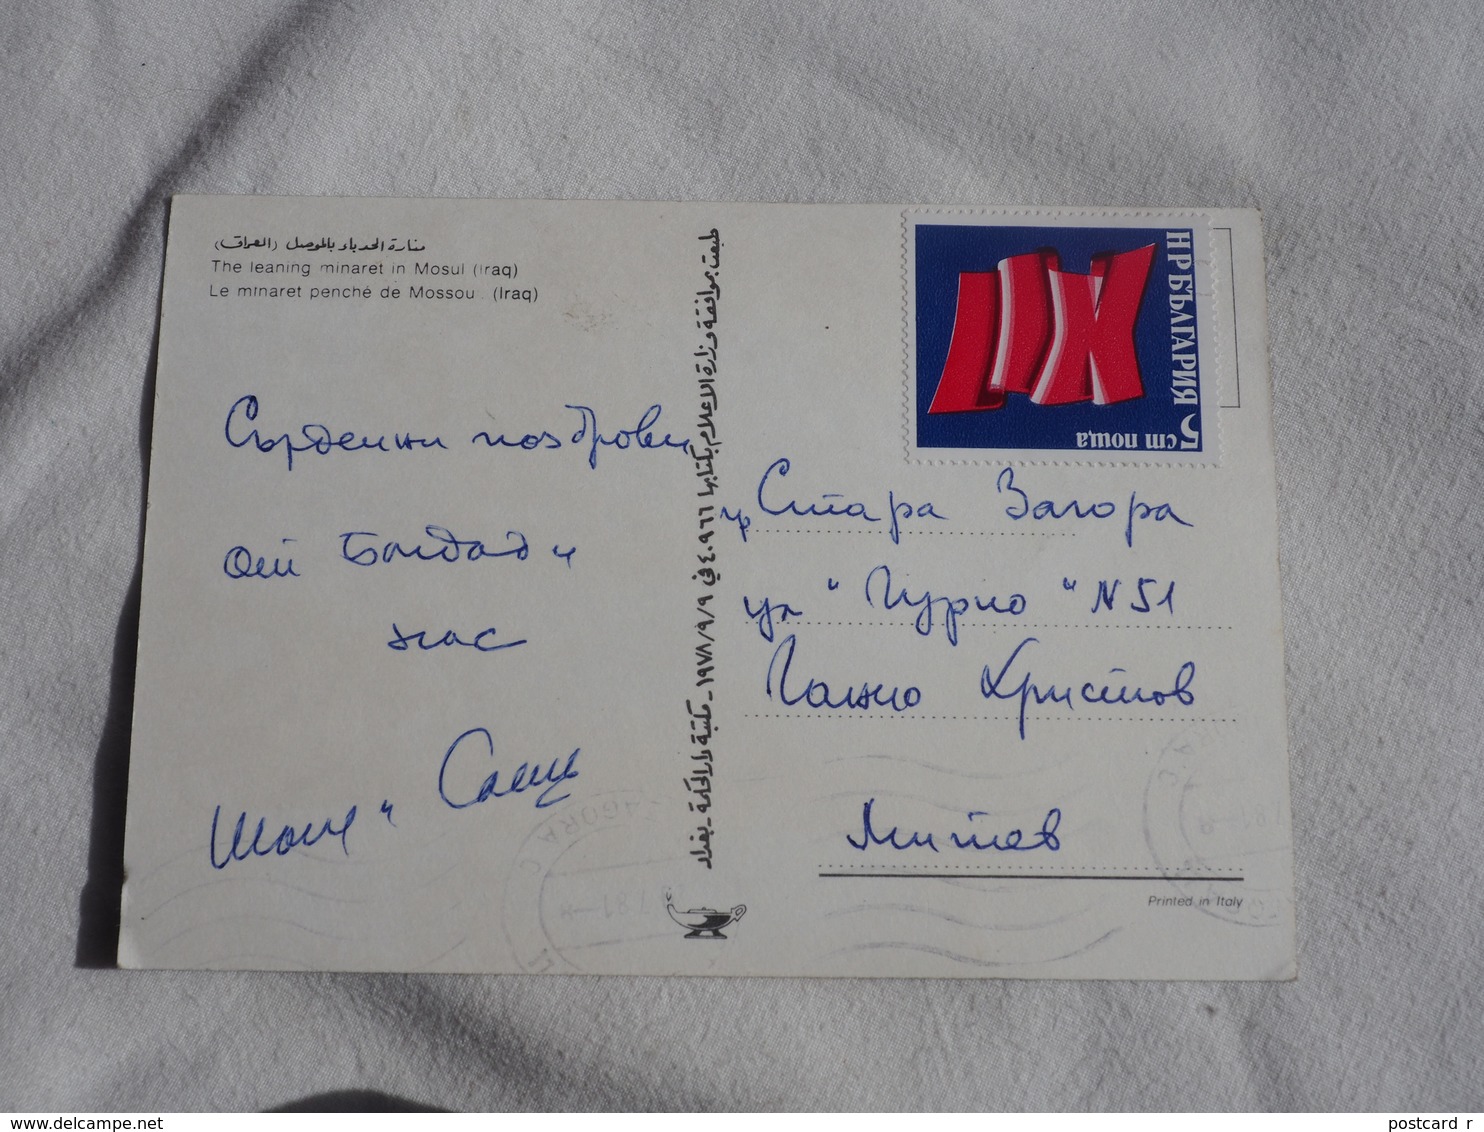 منارة الحدباء بالموصل (العراق)
The leaning minaret in Mosul (Iraq)
Le minaret penché de Mossou (Iraq)
Сърдечни поздрави
от Багдад и
нас
и Саши
طبعت بموافقة وزارة الاعلام بكتابها ٤٠٩٦٦ في ١٩٧٨/٩/٩ - مكتبة دار الحكمة - بغداد
НР БЪЛГАРИЯ
5 ст поща
гр Стара Загора
ул "Гурко" N 51
Ганчо Христов
Митев
Printed in Italy
postcard r